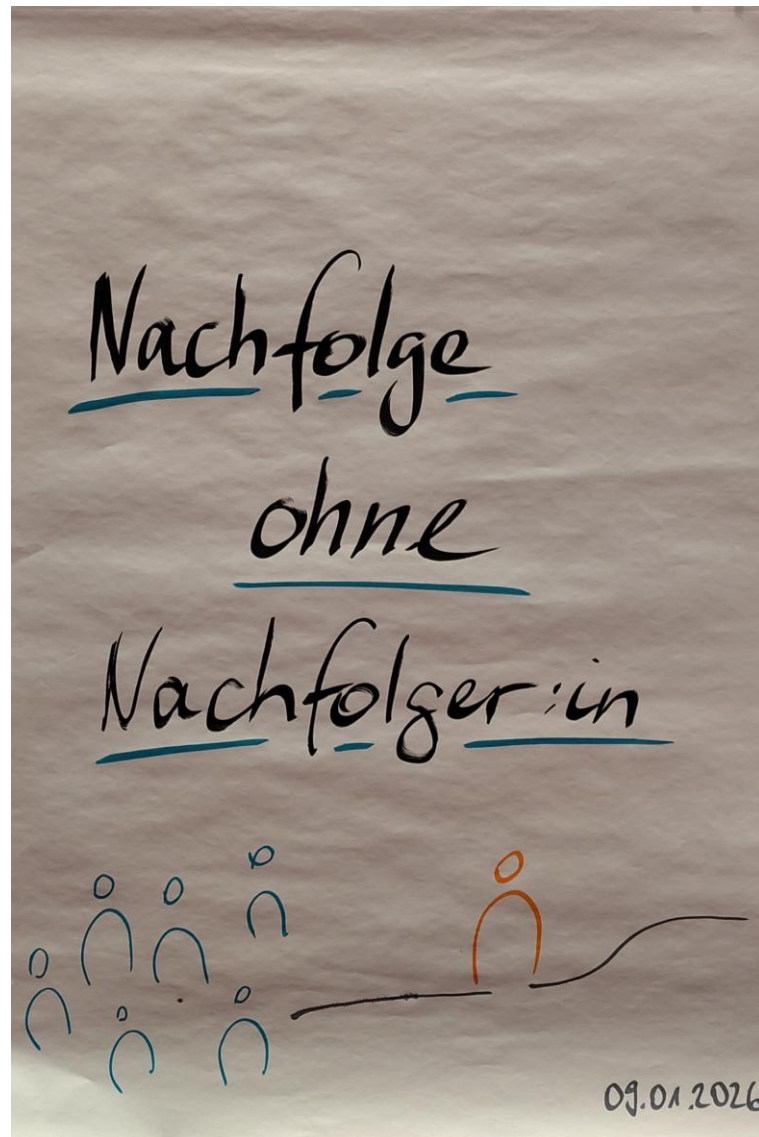 Nachfolge
ohne
Nachfolger:in
09.01.2026